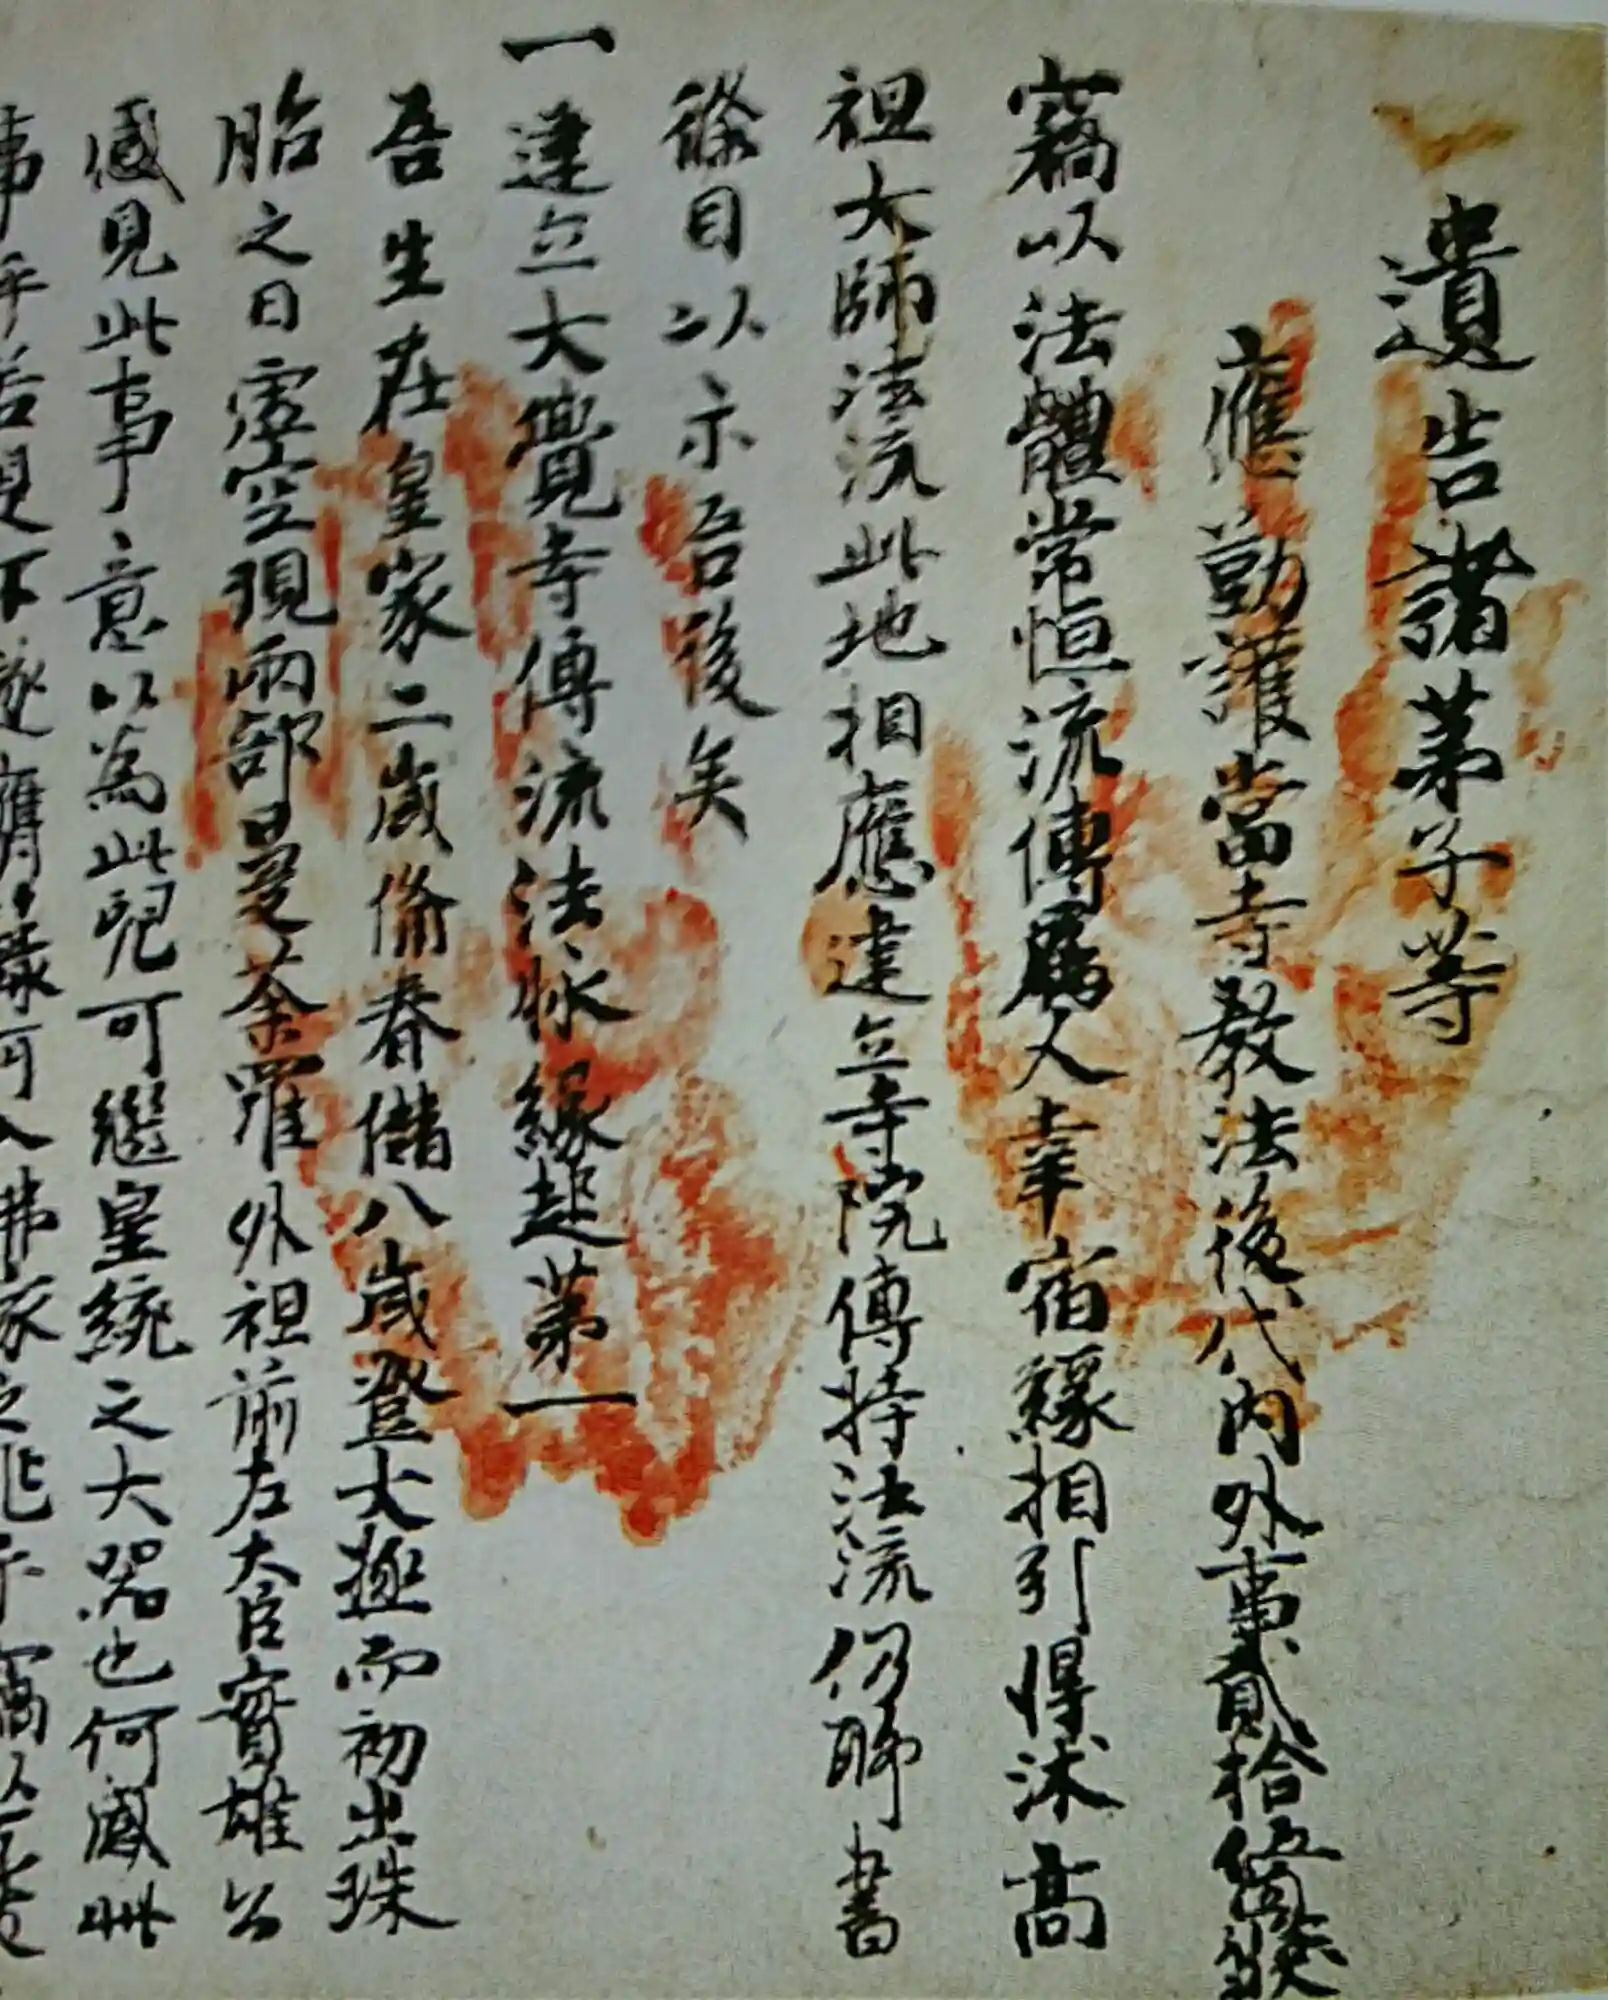 遺告諸弟子等
應勤護當寺教法後代内外事貳拾伍箇條
竊以法體常恒流傳属人幸宿縁相引得沐高
祖大師法流此地相應建立寺院傳持法流仍聊書
條目以示吾後矣
一建立大覺寺傳流法脉縁起第一
吾生在皇家二歳備春儲八歳登大極而初出珠
胎之日虚空現兩部曼荼羅外祖前左大臣實雄公
感見此事意以為此兒可繼皇統之大器也何感此